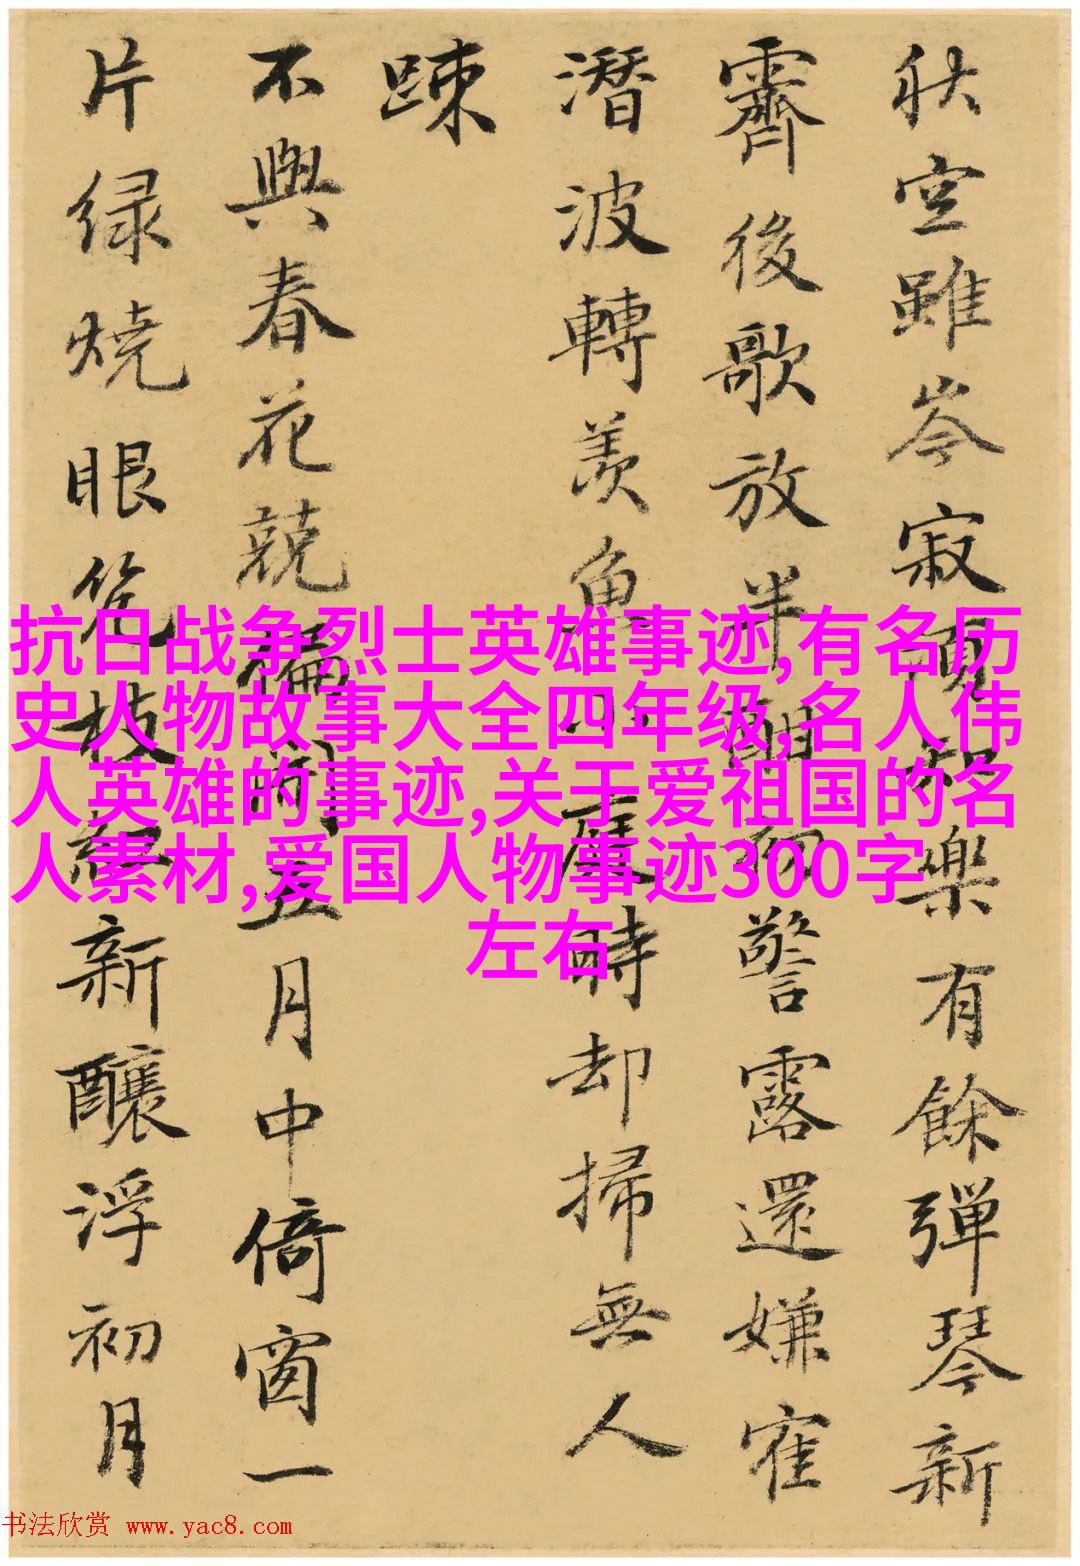 秋空雖岑寂樂有餘彈琴新
霽後歌放半酣初警露還嫌隺
潛波轉羨魚時却掃無人
踈
不與春花競偏五月中倚窗一
片緑燒眼枝紅新釀浮初月
抗日战争烈士英雄事迹,有名历
史人物故事大全四年级,名人伟
人英雄的事迹,关于爱祖国的名
人素材,爱国人物事迹300字
左右
书法欣赏 www.yac8.com